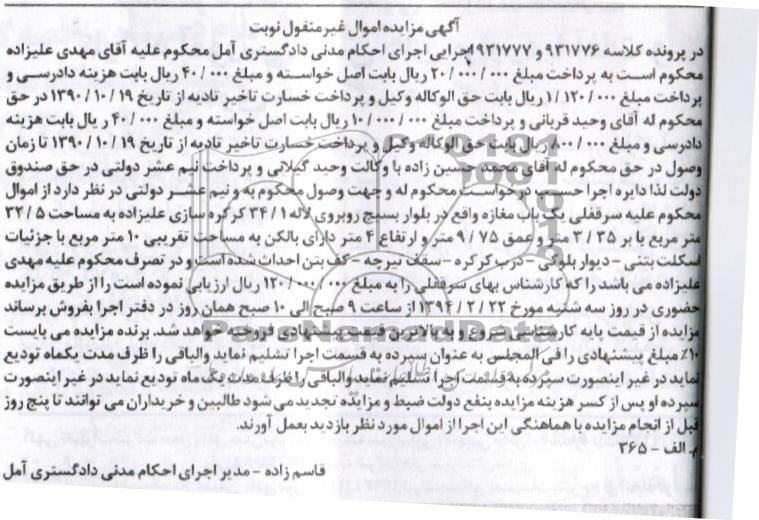 آگهی مزایده اموال غیر منقول نوبت
در پرونده کلاسه ۹۳۱۷۷۶ و ۹۳۱۷۷۷ اجرایی اجرای احکام مدنی دادگستری آمل محکوم علیه آقای مهدی علیزاده
محکوم است به پرداخت مبلغ ۲۰/۰۰۰/۰۰۰ ریال بابت اصل خواسته و مبلغ ۴۰/۰۰۰ ریال بابت هزینه دادرسی و
پرداخت مبلغ ۱/۱۲۰/۰۰۰ ریال بابت حق الوکاله وکیل و پرداخت خسارت تاخیر تادیه از تاریخ ۱۳۹۰/۱۰/۱۹ در حق
محکوم له آقای وحید قربانی و پرداخت مبلغ ۱۰/۰۰۰/۰۰۰ ریال بابت اصل خواسته و مبلغ ۴۰/۰۰۰ ریال بابت هزینه
دادرسی و مبلغ ۸۰۰/۰۰۰ ریال بابت حق الوکاله وکیل و پرداخت خسارت تاخیر تادیه از تاریخ ۱۳۹۰/۱۰/۱۹ تا زمان
وصول در حق محکوم له آقای محمد حسین زاده با وکالت وحید گیلانی و پرداخت نیم عشر دولتی در حق صندوق
دولت لذا دایره اجرا حسب درخواست محکوم له و جهت وصول محکوم به و نیم عشر دولتی در نظر دارد از اموال
محکوم علیه سرقفلی یک باب مغازه واقع در بلوار بسیج روبروی لاله ۳۴/۱ کرکره سازی علیزاده به مساحت ۳۲/۵
متر مربع با بر ۳/۳۵ متر و عمق ۹/۷۵ متر و ارتفاع ۴ متر دارای بالکن به مساحت تقریبی ۱۰ متر مربع با جزئیات
اسکلت بتنی - دیوار بلوکی - درب کرکره - سقف تیرچه - کف بتن احداث شده است و در تصرف محکوم علیه مهدی
علیزاده می باشد را که کارشناس بهای سرقفلی را به مبلغ ۱۲۰/۰۰۰/۰۰۰ ریال ارزیابی نموده است را از طریق مزایده
حضوری در روز سه شنبه مورخ ۱۳۹۴/۲/۲۲ از ساعت ۹ صبح الی ۱۰ صبح همان روز در دفتر اجرا بفروش برساند
مزایده از قیمت پایه کارشناسی شروع و به بالاترین قیمت پیشنهادی فروخته خواهد شد. برنده مزایده می بایست
۱۰٪ مبلغ پیشنهادی را فی المجلس به عنوان سپرده به قسمت اجرا تسلیم نماید والباقی را ظرف مدت یکماه تودیع
نماید در غیر اینصورت سپرده به قسمت اجرا تسلیم نماید والباقی را ظرف مدت یک ماه تودیع نماید در غیر اینصورت
سپرده او پس از کسر هزینه مزایده بنفع دولت ضبط و مزایده تجدید می شود طالبین و خریداران می توانند تا پنج روز
قبل از انجام مزایده با هماهنگی این اجرا از اموال مورد نظر بازدید بعمل آورند.
م. الف - ۳۶۵
قاسم زاده - مدیر اجرای احکام مدنی دادگستری آمل
ParsNamadData